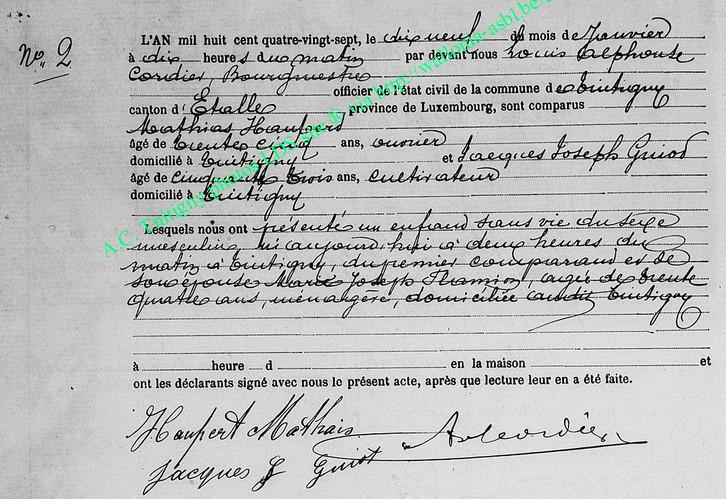 No. 2
L'AN mil huit cent quatre-vingt-sept, le dix neuf du mois de Janvier
à dix heures du matin par devant nous Louis Alphonse
Cordier, Bourgmestre
officier de l'état civil de la commune de Tintigny
canton d'Etalle province de Luxembourg, sont comparus
Mathias Haupers
âgé de trente cinq ans, ouvrier
domicilié à Tintigny et Jacques Joseph Guiot
âgé de cinquante trois ans, cultivateur
domicilié à Tintigny
Lesquels nous ont présenté un enfant sans vie du sexe
masculin, né aujourd'hui à deux heures du
matin à Tintigny, du premier comparant et de
son épouse Marie Joseph Thamion, agée de trente
quatre ans, ménagère, domiciliée audit Tintigny
à heure d en la maison et
ont les déclarants signé avec nous le présent acte, après que lecture leur en a été faite.
Haupert Mathais
A. Cordier
Jacques J Guiot
A.C. Tintigny photos LDS site @ via http://wallonia-asbl.be